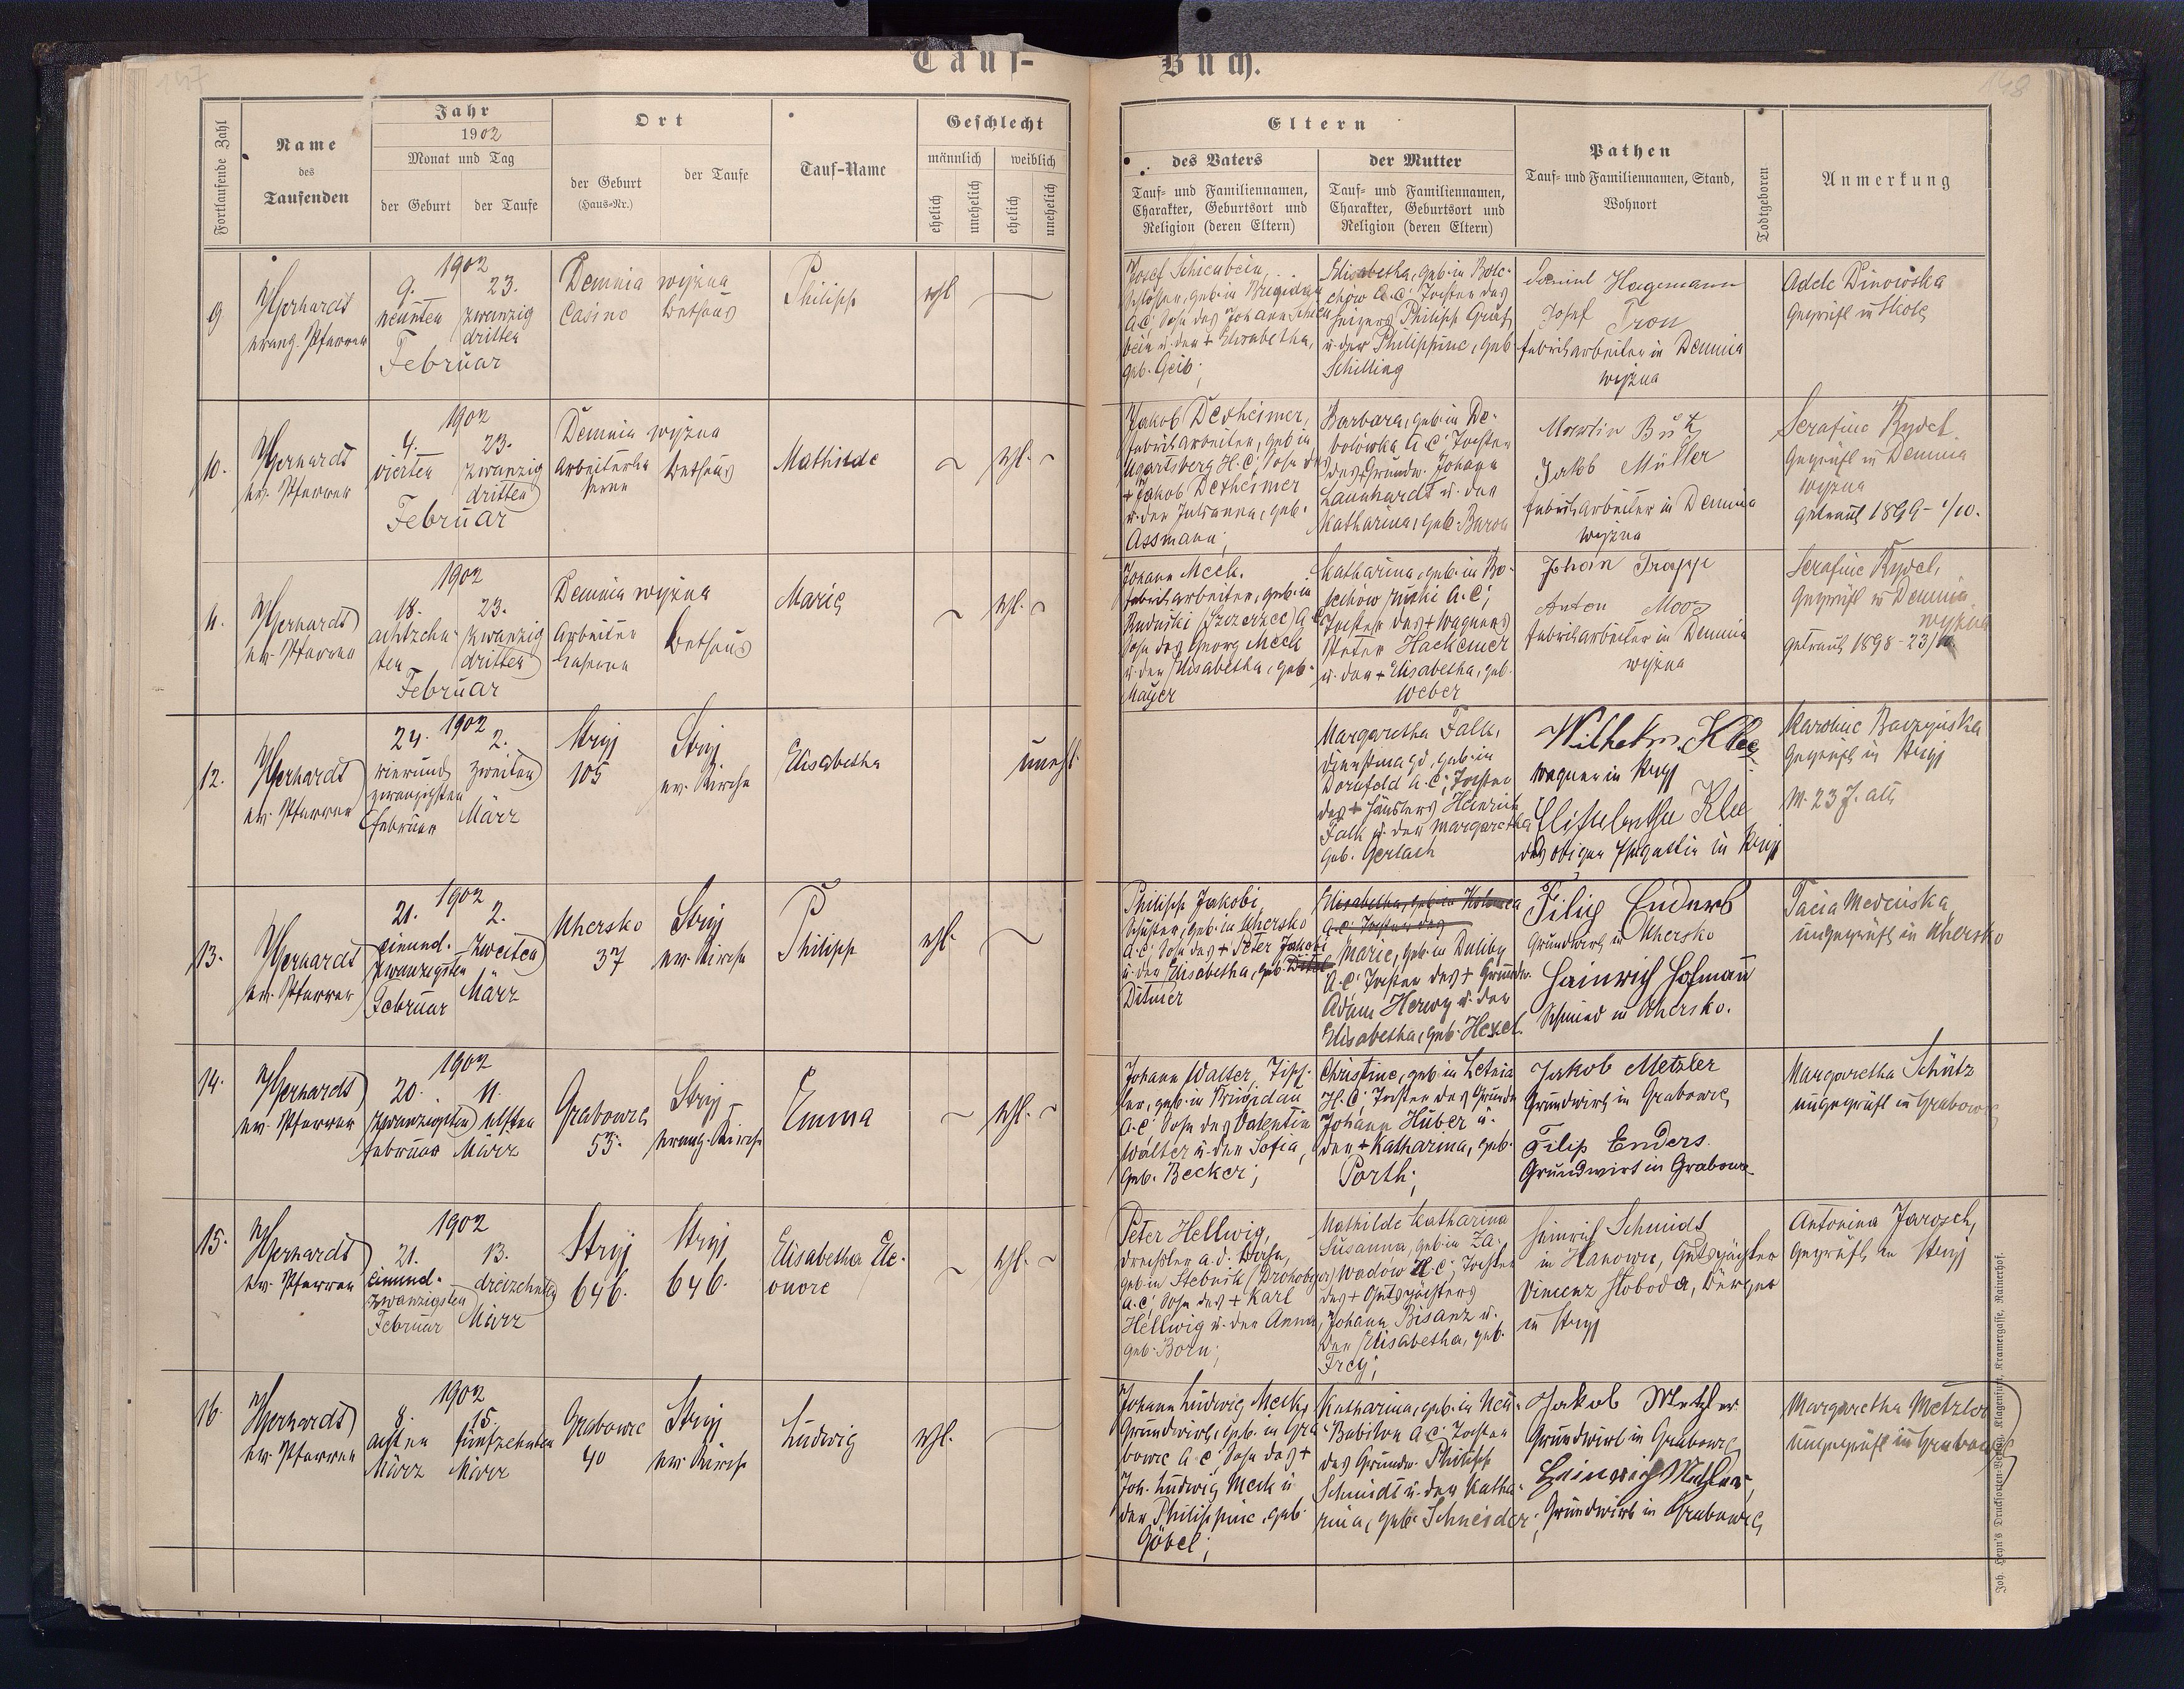 147
148
Tauf-
Buch.
Fortlaufende Zahl
Name
des
Taufenden
Jahr
1902
Monat und Tag
der Geburt
der Taufe
Ort
der Geburt
(Haus-Nr.)
der Taufe
Tauf-Name
Geschlecht
männlich
weiblich
ehelich
unehelich
ehelich
unehelich
Eltern
des Vaters
Tauf- und Familiennamen,
Charakter, Geburtsort und
Religion (deren Eltern)
der Mutter
Tauf- und Familiennamen,
Charakter, Geburtsort und
Religion (deren Eltern)
Pathen
Tauf- und Familiennamen, Stand,
Wohnort
Todtgeboren
Anmerkung
9
evang. Pfarrer
1902
9. 23.
neunten zwanzig
dritten
Februar
Demnia wyżna
Casino Bethaus
Philipp
ehl
Josef Schienbein,
Schlosser, geb. in Brigidau
A.C., Sohn des Johann Schien
bein u. der + Elisabetha,
geb. Geib;
Elisabetha, geb. in Bole-
chow A.C., Tochter des
Heizers Philipp Gräf
u. der Philippine, geb.
Schilling
Daniel Hagemann
Josef Tron
Fabriksarbeiter in Demnia
wyżna
Adele Dinowska
Geprüft in Skole
10.
ev. Pfarrer
1902
4. 23.
vierten zwanzig
dritten
Februar
Demnia wyżna
Arbeiterka
serne Bethaus
Mathilde
ehl.
Jakob Dexheimer,
Fabriksarbeiter, geb. in
Ugartsberg H.C., Sohn des
+ Jakob Dexheimer
u. der Julianna, geb.
Assmann;
Barbara, geb. in Do-
bolówka A.C., Tochter
des + Grundw. Johann
Launhardt u. der
Katharina, geb. Baron
Martin Butz
Jakob Müller
Fabriksarbeiter in Demnia
wyżna
Serafine Rydel
Geprüft in Demnia
wyżna
getraut 1899 - 1/10.
11.
ev. Pfarrer
1902
18. 23.
achtzehn- zwanzig
ten dritten
Februar
Demnia wyżna
Arbeiter
kaserne Bethaus
Marie
ehl.
Johann Meck,
Fabriksarbeiter, geb. in
Rudniki (Szczerzec) A.C.
Sohn des Georg Meck
u. der Elisabetha, geb.
Mayer
Katharina, geb. in Bo-
lechow ruski A.C.,
Tochter des + Wagners
Peter Hackemer
u. der + Elisabetha, geb.
Weber
Johan Trapp
Anton Moos
Fabriksarbeiter in Demnia
wyżna
Serafine Rydel,
Geprüft in Demnia
wyżna
getraut 1898 - 23/10.
12.
ev. Pfarrer
1902
24. 2.
vierund zweiten
zwanzigsten
Februar März
Stryj Stryj
105 ev. Kirche
Elisabetha
unehl.
Margaretha Falk,
Dienstmagd, geb. in
Dornfeld A.C., Tochter
des + Häuslers Heinrich
Falk u. der Margaretha
geb. Gerlach
Wilhelm Klee
Wagner in Stryj
Elisabetha Klee
des obigen Ehegattin in Stryj
Karoline Baczyńska
Geprüft in Stryj
M. 23 J. alt
13.
ev. Pfarrer
1902
21. 2.
einund- zweiten
zwanzigsten
Februar März
Uhersko Stryj
37 ev. Kirche
Philipp
ehl.
Philipp Jakobi,
Schuster, geb. in Uhersko
A.C., Sohn des + Peter Jakobi
u. der Elisabetha, geb.
Ditmer
Elisabetha, geb. in Kolomea
A.C. Tochter des
Marie, geb. in Duliby
A.C., Tochter des + Grundw.
Adam Herwy u. der
Elisabetha, geb. Hexel.
Filip Enders
Grundwirth in Uhersko
Heinrich Hofmann
Schmied in Uhersko.
Tacia Medeinska
ungeprüft in Uhersko
14.
ev. Pfarrer
1902
20. 11.
zwanzigsten elften
Februar März
Grabowce Stryj
53. evang. Kirche
Emma
ehl.
Johann Walter, Tisch-
ler, geb. in Brigidau
A.C. Sohn des Valentin
Walter u. der Sofia,
geb. Becker;
Christine, geb. in Letnia
H.C., Tochter des Grundw.
Johann Huber u.
der + Katharina, geb.
Porth;
Jakob Metzler
Grundwirth in Grabowce
Filip Enders
Grundwirt in Grabowce
Margaretha Schütz
ungeprüft in Grabowce
15.
ev. Pfarrer
1902
21. 13.
einund- dreizehnten
zwanzigsten
Februar März
Stryj Stryj,
646. 646.
Elisabetha Ele-
onore
ehl.
Peter Hellwig,
Drechsler a.d. Bahn,
geb. in Stebnik (Drohobycz)
A.C., Sohn des + Karl
Hellwig u. der Anna,
geb. Born;
Mathilde Katharina
Susanna, geb. in Za-
wadow H.C., Tochter
des + Gutspächters
Johann Bisanz u.
der Elisabetha, geb.
Frey;
Heinrich Schmidt
in Hanowce, Gutspächter
Vincenz Sloboda, Bürger
in Stryj
Antonina Jarosch,
Geprüft in Stryj
16.
ev. Pfarrer
1902
8. 15.
achten fünfzehnten
März März
Grabowce Stryj
40 ev. Kirche
Ludwig
ehl.
Johann Ludwig Meck,
Grundwirth, geb. in Gra-
bowce A.C., Sohn des +
Joh. Ludwig Meck u.
der Philippine, geb.
Göbel;
Katharina, geb. in Neu-
Babilon A.C., Tochter
des Grundw. Philipp
Schmidt u. der Katha-
rina, geb. Schneider;
Jakob Metzler
Grundwirth in Grabowce
Heinrich Metzler,
Grundwirth in Grabowce
Margaretha Metzler
ungeprüft in Grabowce
Joh. Heyn's Drucksorten-Verlag, Klagenfurt, Kramergasse, Rainerhof.